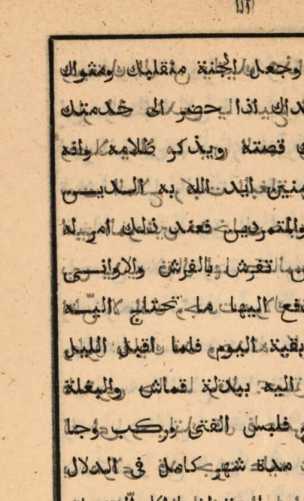 وجعل الجنة منقلبك ومثواك
اذا حضر الى خدمتك
قصته ويذكر ظلامه وانه
ايد الله به الديـــن
والمتمردين فعند ذلك امر له
تفرش بالفرش والاوانـــى
اليها ما تحتاج اليـــه
بقية اليوم فلما اقبل الليل
اليه ببدلة قماش والبغلة
فلبس الفتى وركب وجا
مدة شهر كامل فى الدلال